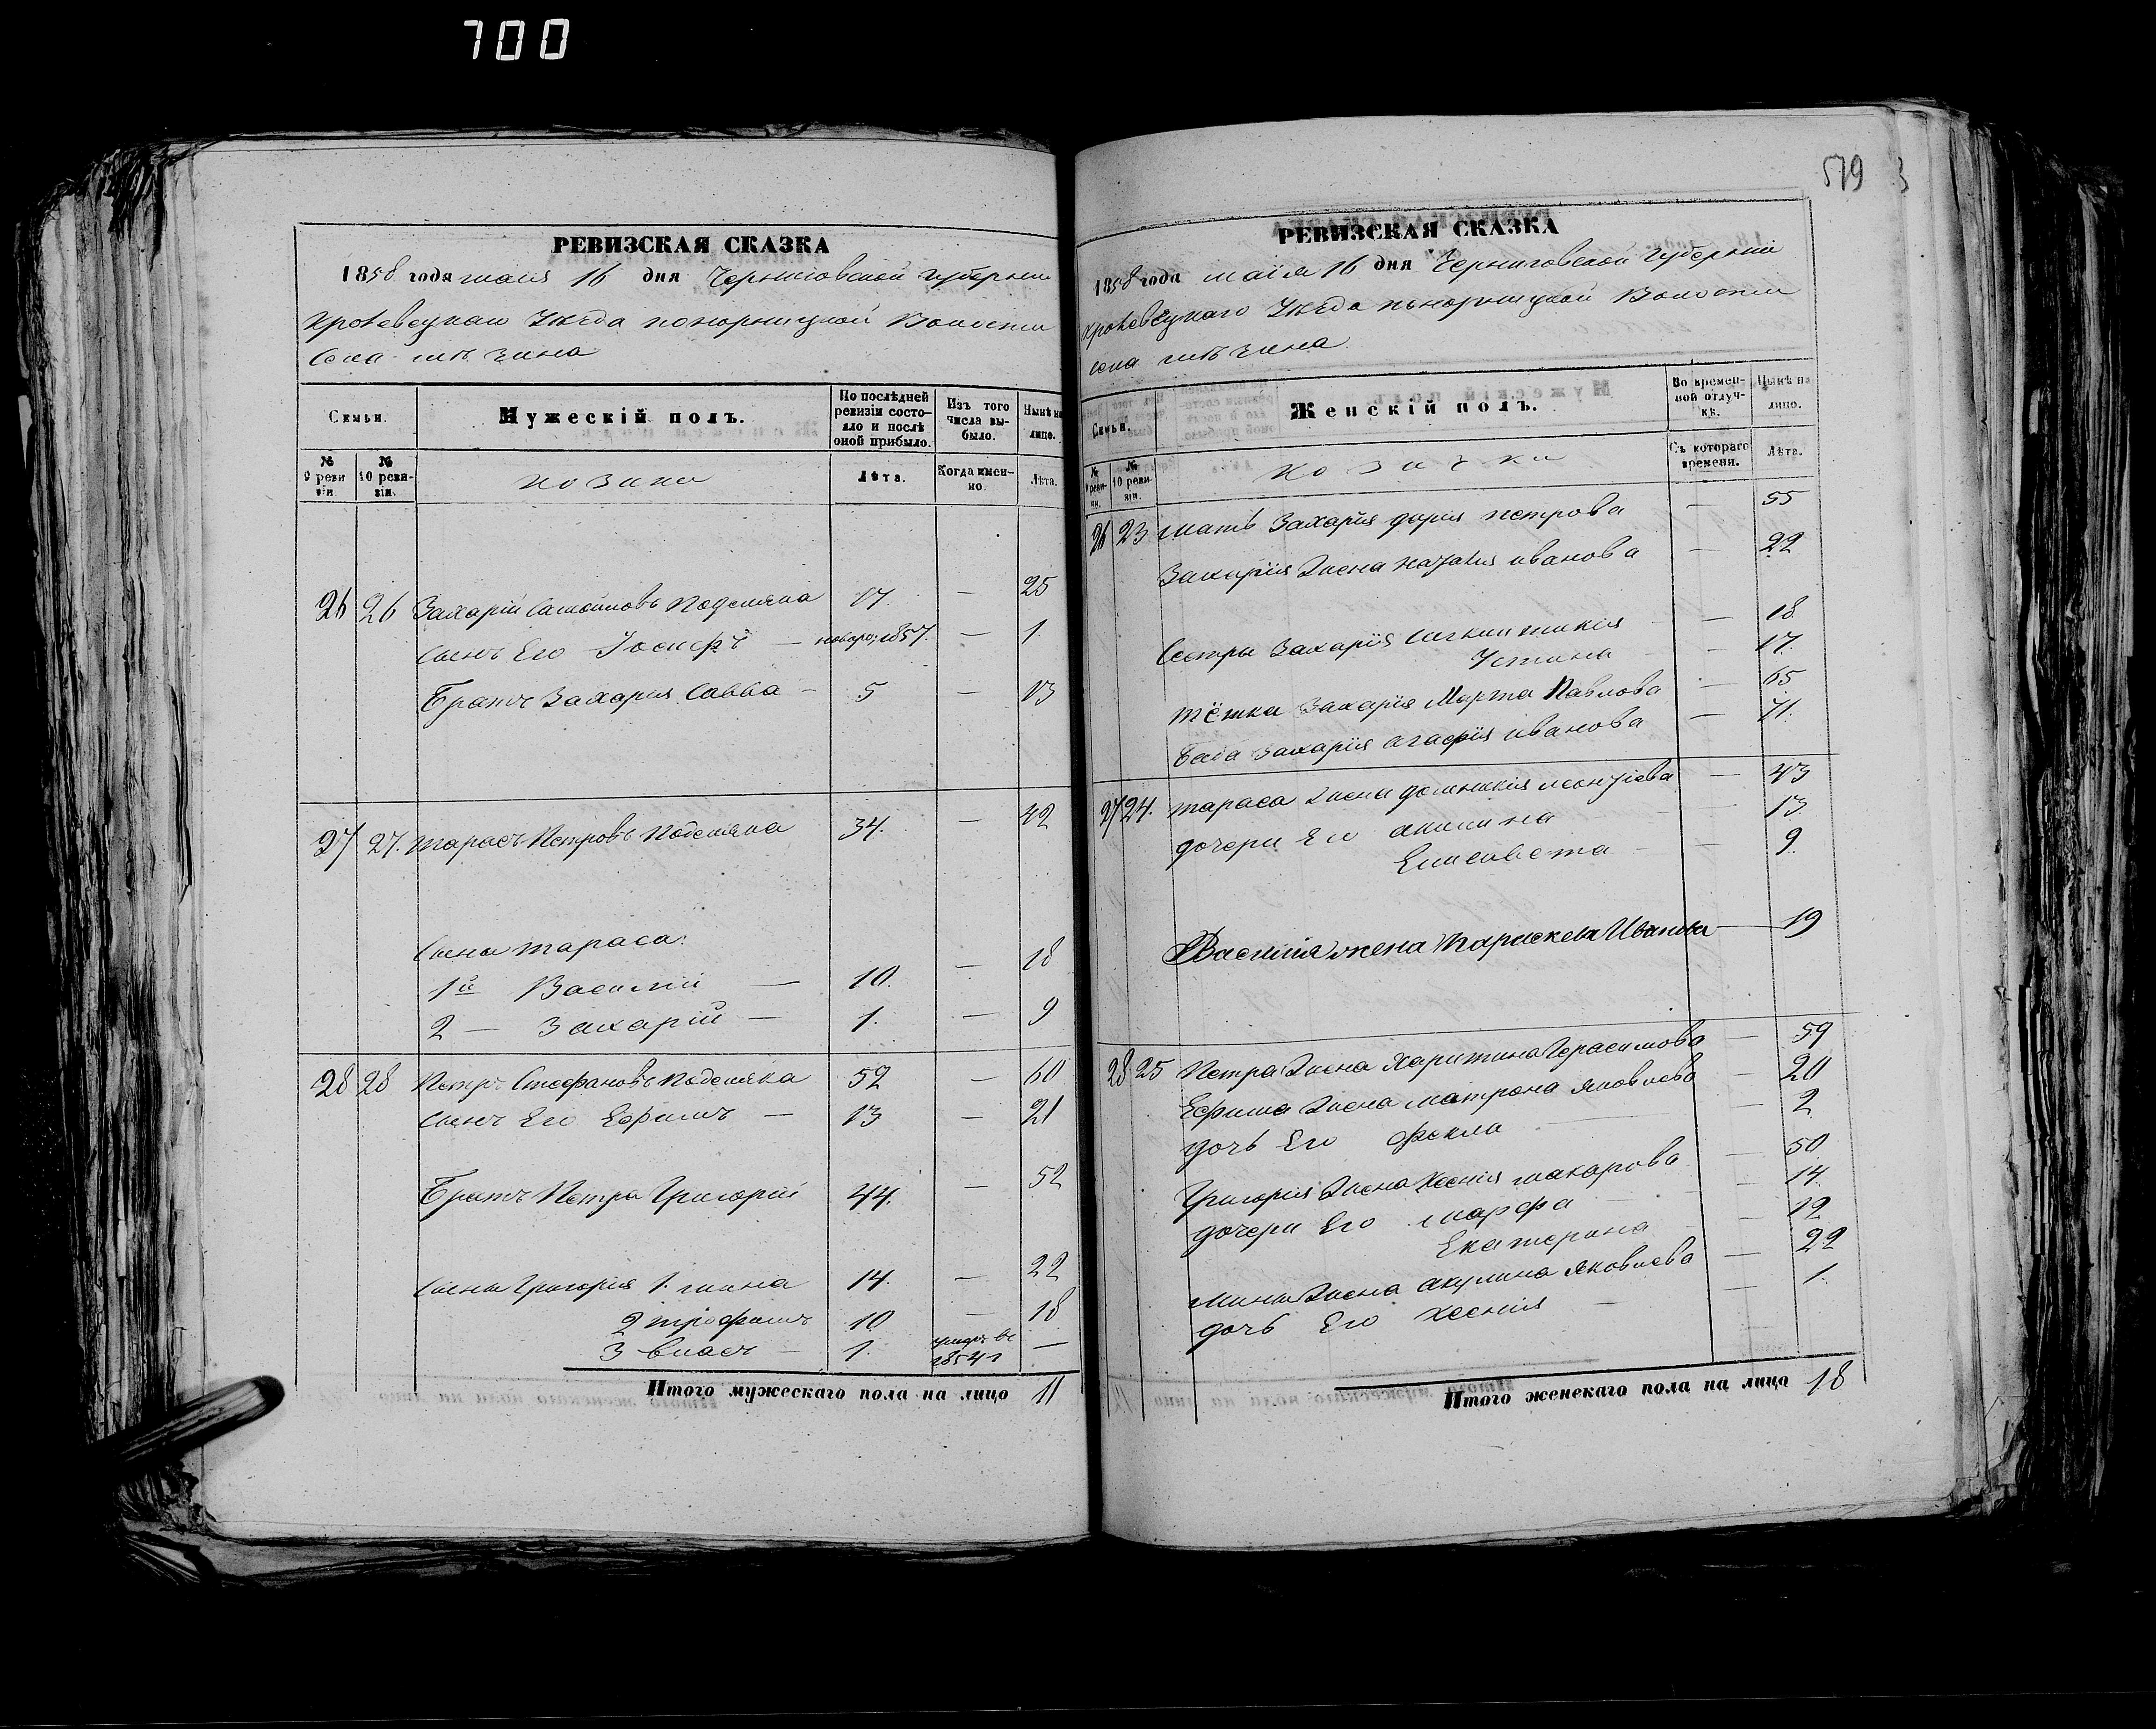 700
РЕВИЗСКАЯ СКАЗКА
1858 года маия 16 дня Черниговской Губернии
Кролевецкаго Уѣзда понорницкой Волости
Села
Семьи. Мужескій полъ. По послѣдней ревизіи состояло и послѣ оной прибыло. Изъ того числа выбыло. Нынѣ на лицо.
№ 9 ревизіи № 10 ревизіи. козаки Лѣта. Когда именно. Лѣта.
26 26 Захарій Самойловъ Подсмяка 17. — 25
сынъ Его Іосифъ — новоро; 1857. — 1.
Братъ Захария Савва — 5 — 13
27 27. Тарасъ Петровъ Подсмяка 34. — 42
Сыны Тараса:
1й Василій — 10. — 18
2 — Захарій — 1. — 9
28 28 Петръ Стефановъ Подсмяка 52 — 60
сынъ Его Ефимъ — 13 — 21
Братъ Петра Григорій 44. — 52
сыны Григория 1. мина 14. — 22
2 трофимъ 10 — 18
3 власъ — 1. 1854 г —
Итого мужескаго пола на лицо 11
579
3
РЕВИЗСКАЯ СКАЗКА
1858 года маія 16 дня Черниговской Губерніи
Кролевецкаго Уѣзда понорницкой Волости
села
Семьи. Женскій полъ. Во временной отлучкѣ. Нынѣ на лицо.
№ 9 ревизіи. № 10 ревизіи. козачки Съ котораго времени. Лѣта.
26 23 Мать Захарія дария петрова — 55
Захарія жена наталия иванова — 22
Сестры Захарія — 18.
Устина — 17.
тётка Захарія Марта Павлова — 65
баба Захарія агафія иванова — 71.
27 24. тараса жена домникия леонтіева — 43
дочери Его акилина 13.
Елисавета — 9.
Василія жена Параскева Иванова — 19
28 25 Петра жена Харитина Герасимова — 59
Ефима жена матрона яковлева — 20
дочь Его Фекла — 2
Григория жена Ксения макарова — 50
дочери Его марфа — 14.
Екатерина — 12
мины жена акулина яковлева — 22
дочь Его Ксения — 1.
Итого женскаго пола на лицо 18